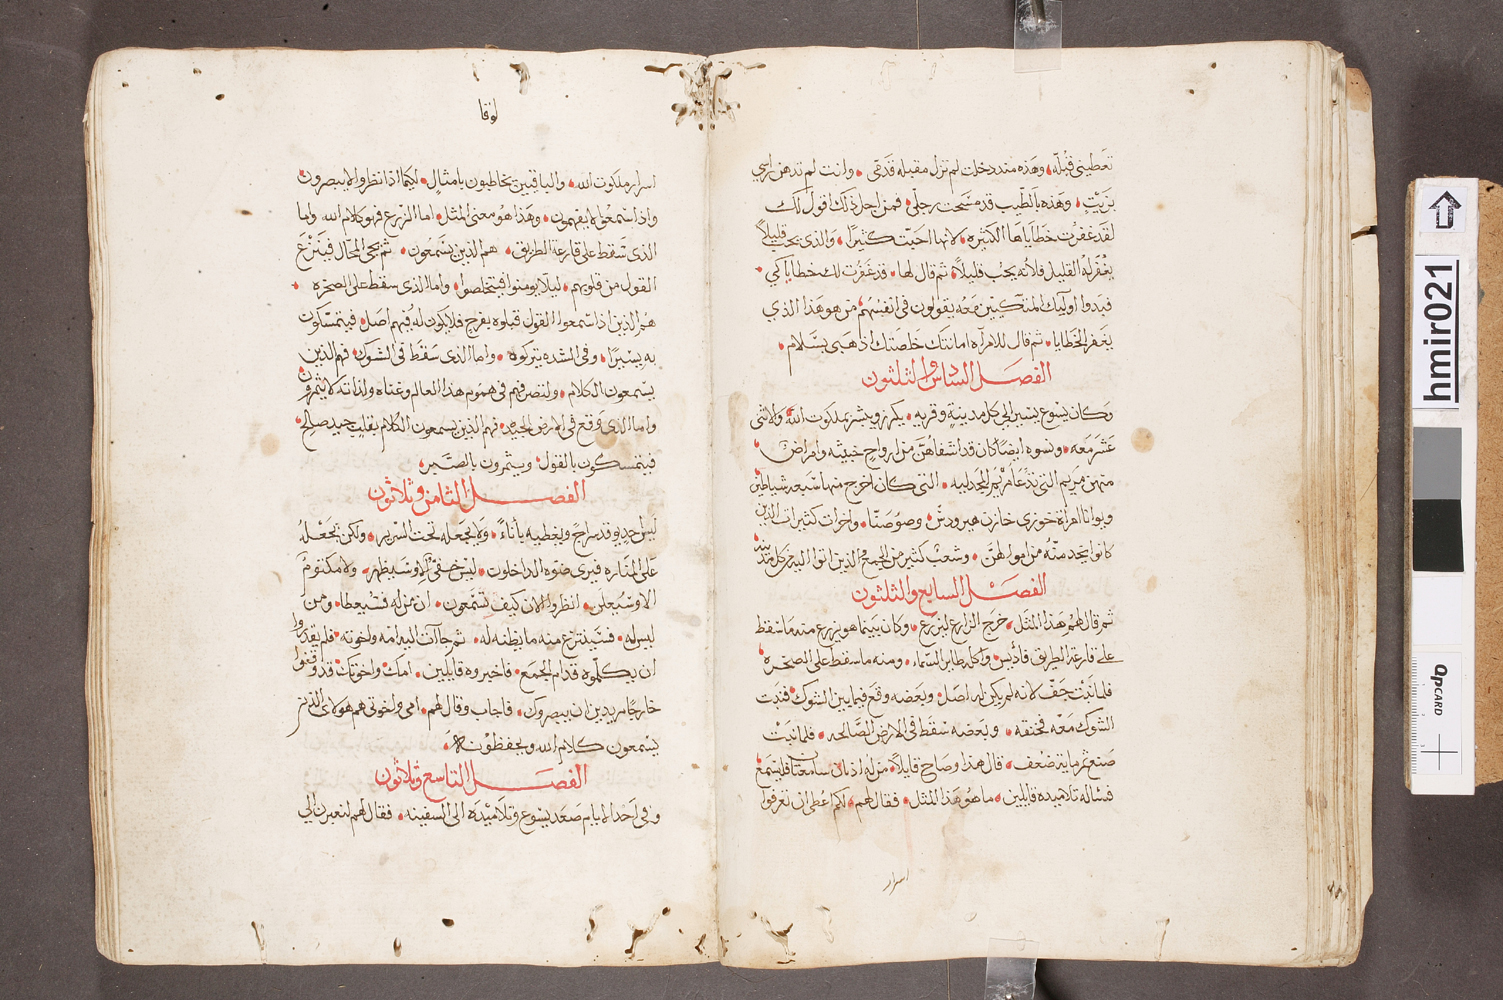 تعطيني قبله وهذه منذ دخلت لم تزل مقبله قدمي وانت لم تدهن راسي
بزيت وهذه بالطيب قد مسحت رجلي فمن اجل ذلك اقول لك
لقد غفرت خطاياها الكثيره لانها احبت كثيرا والذي يحب قليلا
يغفر له القليل فلانه يحب قليلا ثم قال لها قد غفرت لك خطاياكي
فبدوا اوليك المتكيين معه يقولون في انفسهم من هو هذا الذي
يغفر الخطايا ثم قال للامرآه امانتك خلصتك اذهبي بسلام
الفصل السادس والثلثون
وكان يسوع يسير الي كل مدينة وقريه يكرز ويبشر بملكوت الله والاثنى
عشر معه ونسوه ايضا كان قد اشفاهن من ارواح خبيثه وامراض
منهن مريم التي تدعا مريم المجدليه التي كان اخرج منها سبعه شياطين
ويوانا امراة خوزي خازن هيرودس وصوصنا واخرات كثيرات الذين
كانوا يخدمنه من اموالهن وشعب كثير من الجمع الذين اتوا اليه من كل مدينه
الفصل السابع والثلثون
ثم قال لهم هذا المثل خرج الزارع ليزرع وكان بينما هو يزرع منه ما سقط
على قارعة الطريق فاديس واكله طاير السماء ومنه ما سقط على الصخره
فلما نبت جف لانه لم يكن له اصل وبعضه وقع فيما بين الشوك فنبت
الشوك معه فخنقه وبعضه سقط في الارض الصالحه فلما نبت
صنع ثمر ماية ضعف قال هذا وصاح قايلا من له اذنان سامعتان فليسمع
فساله تلاميذه قايلين ما هو هذا المثل فقال لهم لكم اعطى ان تعرفوا
اسرار
لوقا
اسرار ملكوت الله والباقيين يخاطبون بامثال لكيما اذا نظروا لا يبصرون
واذا استمعوا لا يفهمون وهذا هو معنى المثل اما الزرع فهو كلام الله واما
الذى سقط على قارعة الطريق هم الذين يسمعون ثم يجي المحال فينزع
القول من قلوبهم ليلا يومنوا فيتخلصوا واما الذى سقط على الصخره
هم الذين اذا سمعوا القول قبلوه بفرح فلا يكون له فيهم اصل فيتمسكون
به يسيرا وفي الشده يتركوه واما الذى سقط في الشوك فهم الذين
يستمعون الكلام ولتصرفهم في هموم هذا العالم وغناه ولذاته لا يثمرون
واما الذى وقع في الارض الجيده فهم الذين يسمعون الكلام بقلب جيد صالح
فيتمسكون بالقول ويثمرون بالصبر
الفصل الثامن وثلاثون
ليس احد يوقد سراج ويغطيه باناء ولا يجعله تحت السرير ولكن يجعله
على المناره فيرى ضوه الداخلون ليس خفي الا وسيظهر ولا مكتوم
الا وسيعلن انظروا الان كيف تسمعون ان من له فسيعطا ومن
ليس له فسينتزع منه ما يظنه له ثم جاآت اليه امه واخوته فلم يقدروا
ان يكلموه قدام الجمع فاخبروه قايلين امك واخوتك قد وقفوا
خارجا مريدين ان يبصروك فاجاب وقال لهم امي واخوتي هم هولاى الذين
يسمعون كلام الله ويحفظونه
الفصل التاسع وثلاثون
وفي احد الايام صعد يسوع وتلاميذه الى السفينه فقال لهم لنعبر الى